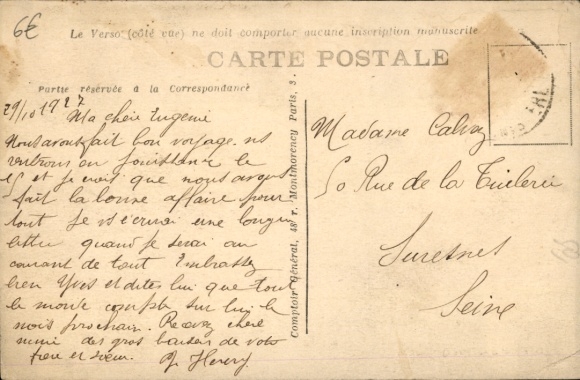 6€
Le Verso (côté vue) ne doit comporter aucune inscription manuscrite
CARTE POSTALE
Partie réservée à la Correspondance
29/10 1927
Ma chère Eugénie
Nous avons fait bon voyage. ns
rentrons en jouissance le
15 et je crois que nous avons
fait la bonne affaire pour
tout je vs écrirai une longue
lettre quand je serai au
courant de tout Embrassez
bien Yves et dites lui que tout
le monde compte sur lui le
mois prochain. Recevez chère
amie des gros baisers de votre
frère et sœur. Henry
Comptoir Général, 48 r. Montmorency Paris, 3.
Madame Calvez
50 Rue de la Tuilerie
Suresnes
Seine